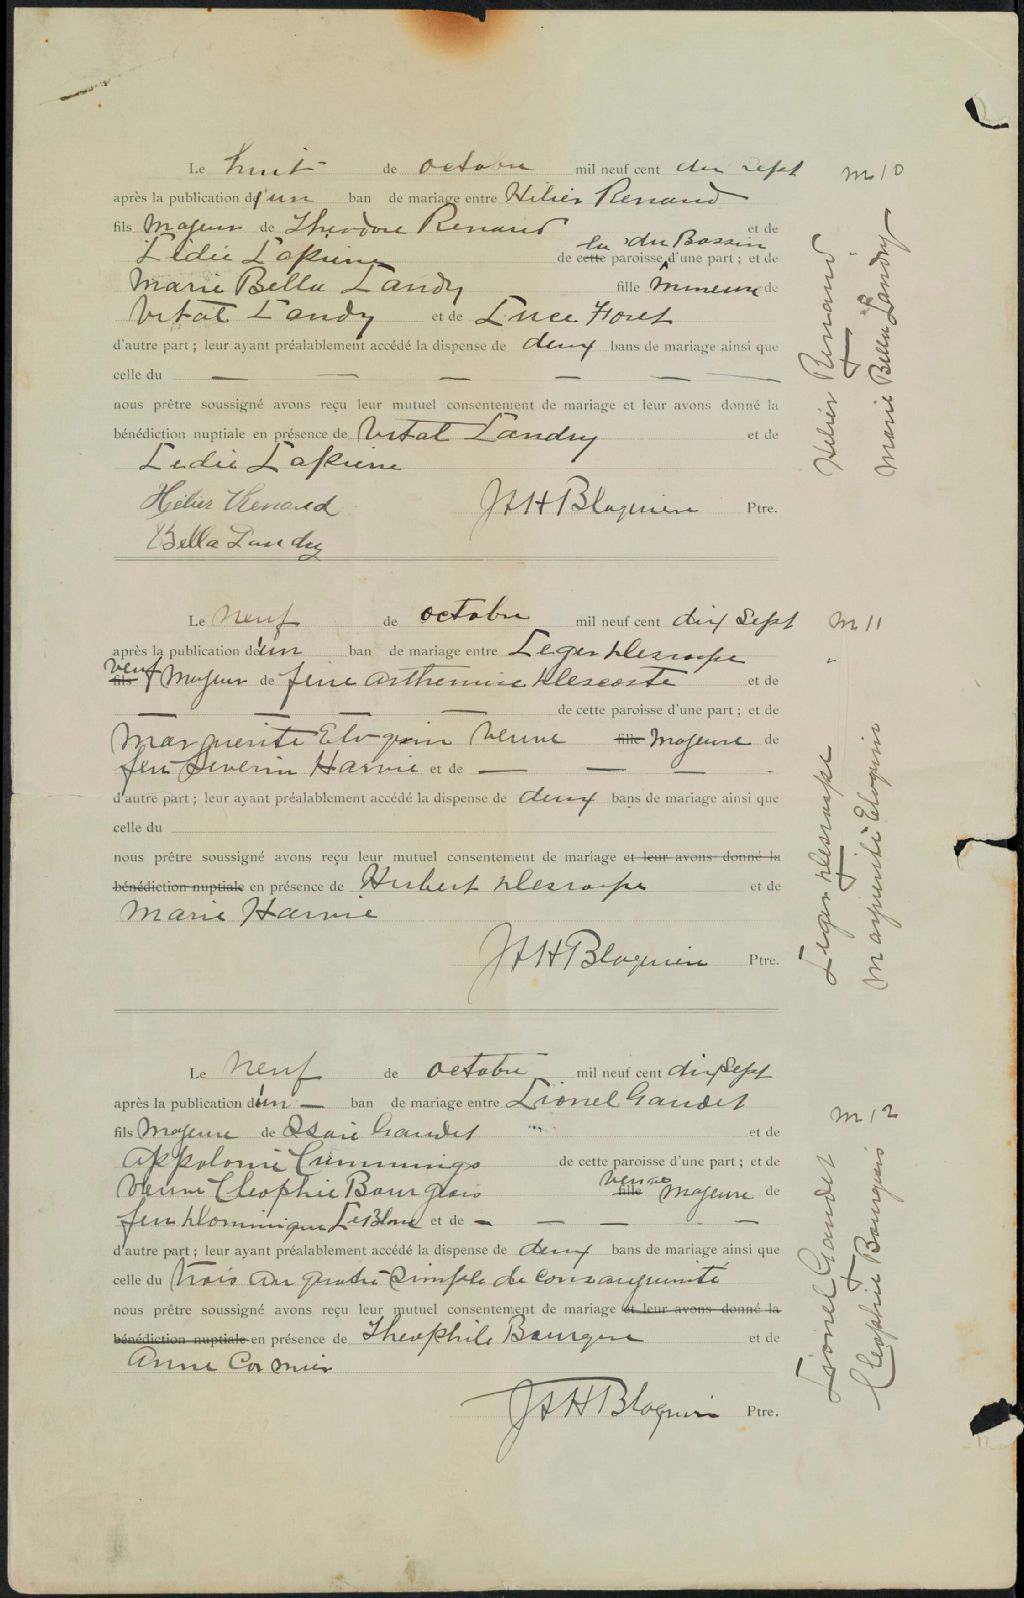 Le huit de octobre mil neuf cent dix sept
après la publication d'un ban de mariage entre Hélier Renaud
fils Majeur de Théodore Renaud et de
Lédie Lapierre de la paroisse du Bassin d'une part ; et de
Marie Bella Landry fille Mineure de
Vital Landry et de Luce Foret
d'autre part ; leur ayant préalablement accédé la dispense de deux bans de mariage ainsi que
celle du — — — — — —
nous prêtre soussigné avons reçu leur mutuel consentement de mariage et leur avons donné la
bénédiction nuptiale en présence de Vital Landry et de
Ledie Lapierre
Hélier Renaud
Bella Landry
JAH Blaquière Ptre.
M 10
Hélier Renaud
+
Marie Bella Landry
Le Neuf de octobre mil neuf cent dix sept
après la publication d'un ban de mariage entre Leger Desraspe
fils veuf Majeur de feue Arthemise Descoste et de
— — — — de cette paroisse d'une part ; et de
Marguerite Eloquin veuve fille Majeure de
feu Severin Harvie et de — — —
d'autre part ; leur ayant préalablement accédé la dispense de deux bans de mariage ainsi que
celle du
nous prêtre soussigné avons reçu leur mutuel consentement de mariage et leur avons donné la
bénédiction nuptiale en présence de Hubert Desraspe et de
Marie Harvie
JAH Blaquière Ptre.
M 11
"
Leger Desraspe
+
Marguerite Eloquin
Le Neuf de octobre mil neuf cent dix sept
après la publication d'un — ban de mariage entre Lionel Gaudet
fils Majeure de Isaïe Gaudet et de
Appolonie Cummings de cette paroisse d'une part ; et de
Veuve Cleophie Bourgeois fille veuve Majeure de
feu Dominique LeBlanc et de — — — —
d'autre part ; leur ayant préalablement accédé la dispense de deux bans de mariage ainsi que
celle du trois au quatre simple de consanguinité
nous prêtre soussigné avons reçu leur mutuel consentement de mariage et leur avons donné la
bénédiction nuptiale en présence de Theophile Bourgeois et de
Anne Cormier
JAH Blaquière Ptre.
M 12
Lionel Gaudet
+
Cleophie Bourgeois